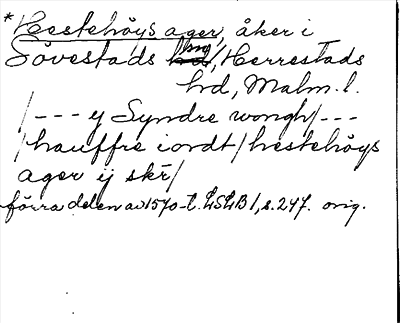 *Hestehöys ager, åker i
Sövestads sn, Herrestads
hd, Malm. l.
/--- y Syndre wongh/---
/hauffre iordt/hestehöys
ager ij skr/
förra delen av 1570-t. LSLB 1, s. 247. orig.